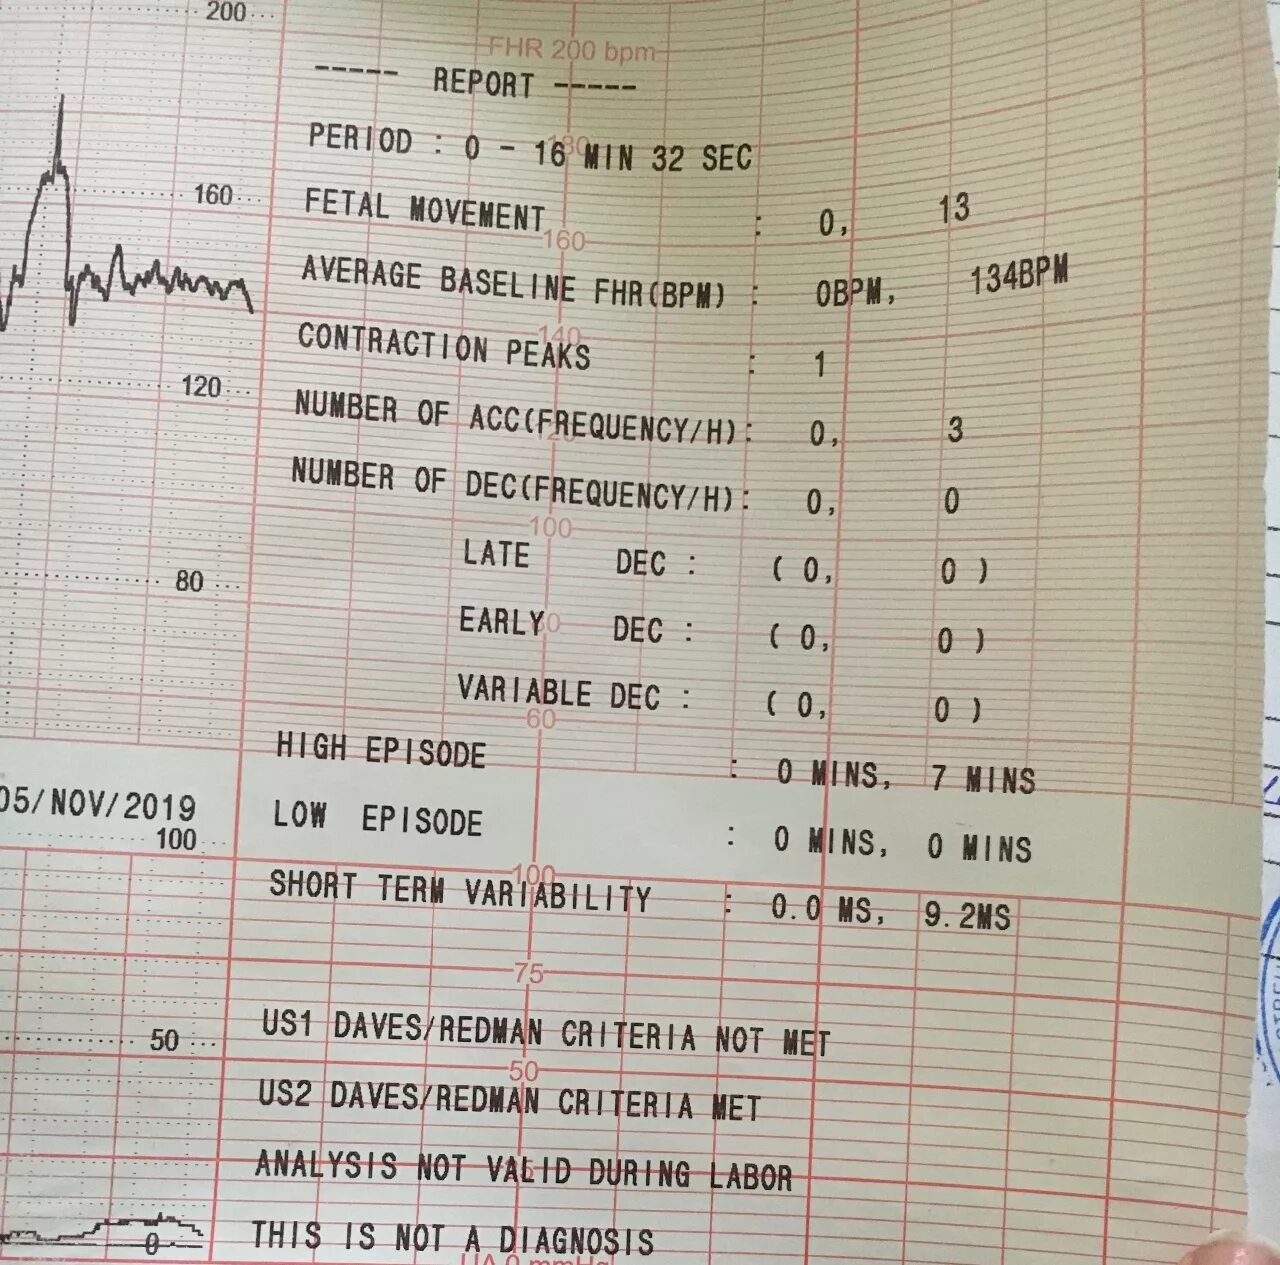 200
FHR 200 bpm
----- REPORT -----
PERIOD : 0 - 16 MIN 32 SEC
160
FETAL MOVEMENT : 0, 13
160
AVERAGE BASELINE FHR(BPM) : 0BPM, 134BPM
140
CONTRACTION PEAKS : 1
120
NUMBER OF ACC(FREQUENCY/H): 0, 3
NUMBER OF DEC(FREQUENCY/H): 0, 0
100
LATE DEC : ( 0, 0 )
80
EARLY DEC : ( 0, 0 )
VARIABLE DEC : ( 0, 0 )
60
HIGH EPISODE : 0 MINS, 7 MINS
05/NOV/2019
LOW EPISODE : 0 MINS, 0 MINS
100
100
SHORT TERM VARIABILITY : 0.0 MS, 9.2MS
75
US1 DAVES/REDMAN CRITERIA NOT MET
50
50
US2 DAVES/REDMAN CRITERIA MET
ANALYSIS NOT VALID DURING LABOR
0
THIS IS NOT A DIAGNOSIS